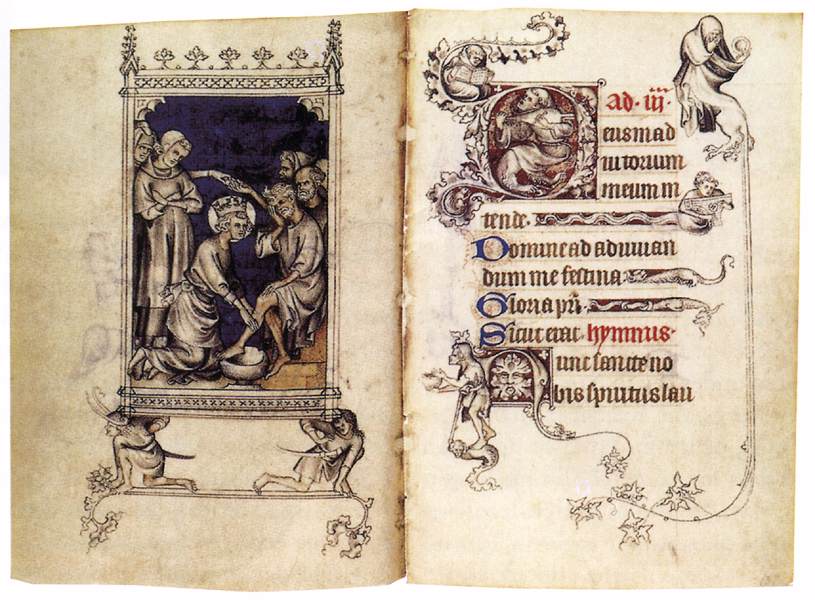 ad · iij ·
Deus in ad
iutorium
meum in
tende.
Domine ad adiuuan
dum me festina
Gloria pr̄i.
Sicut erat. hymnus.
Nunc sancte no
bis spiritus lau